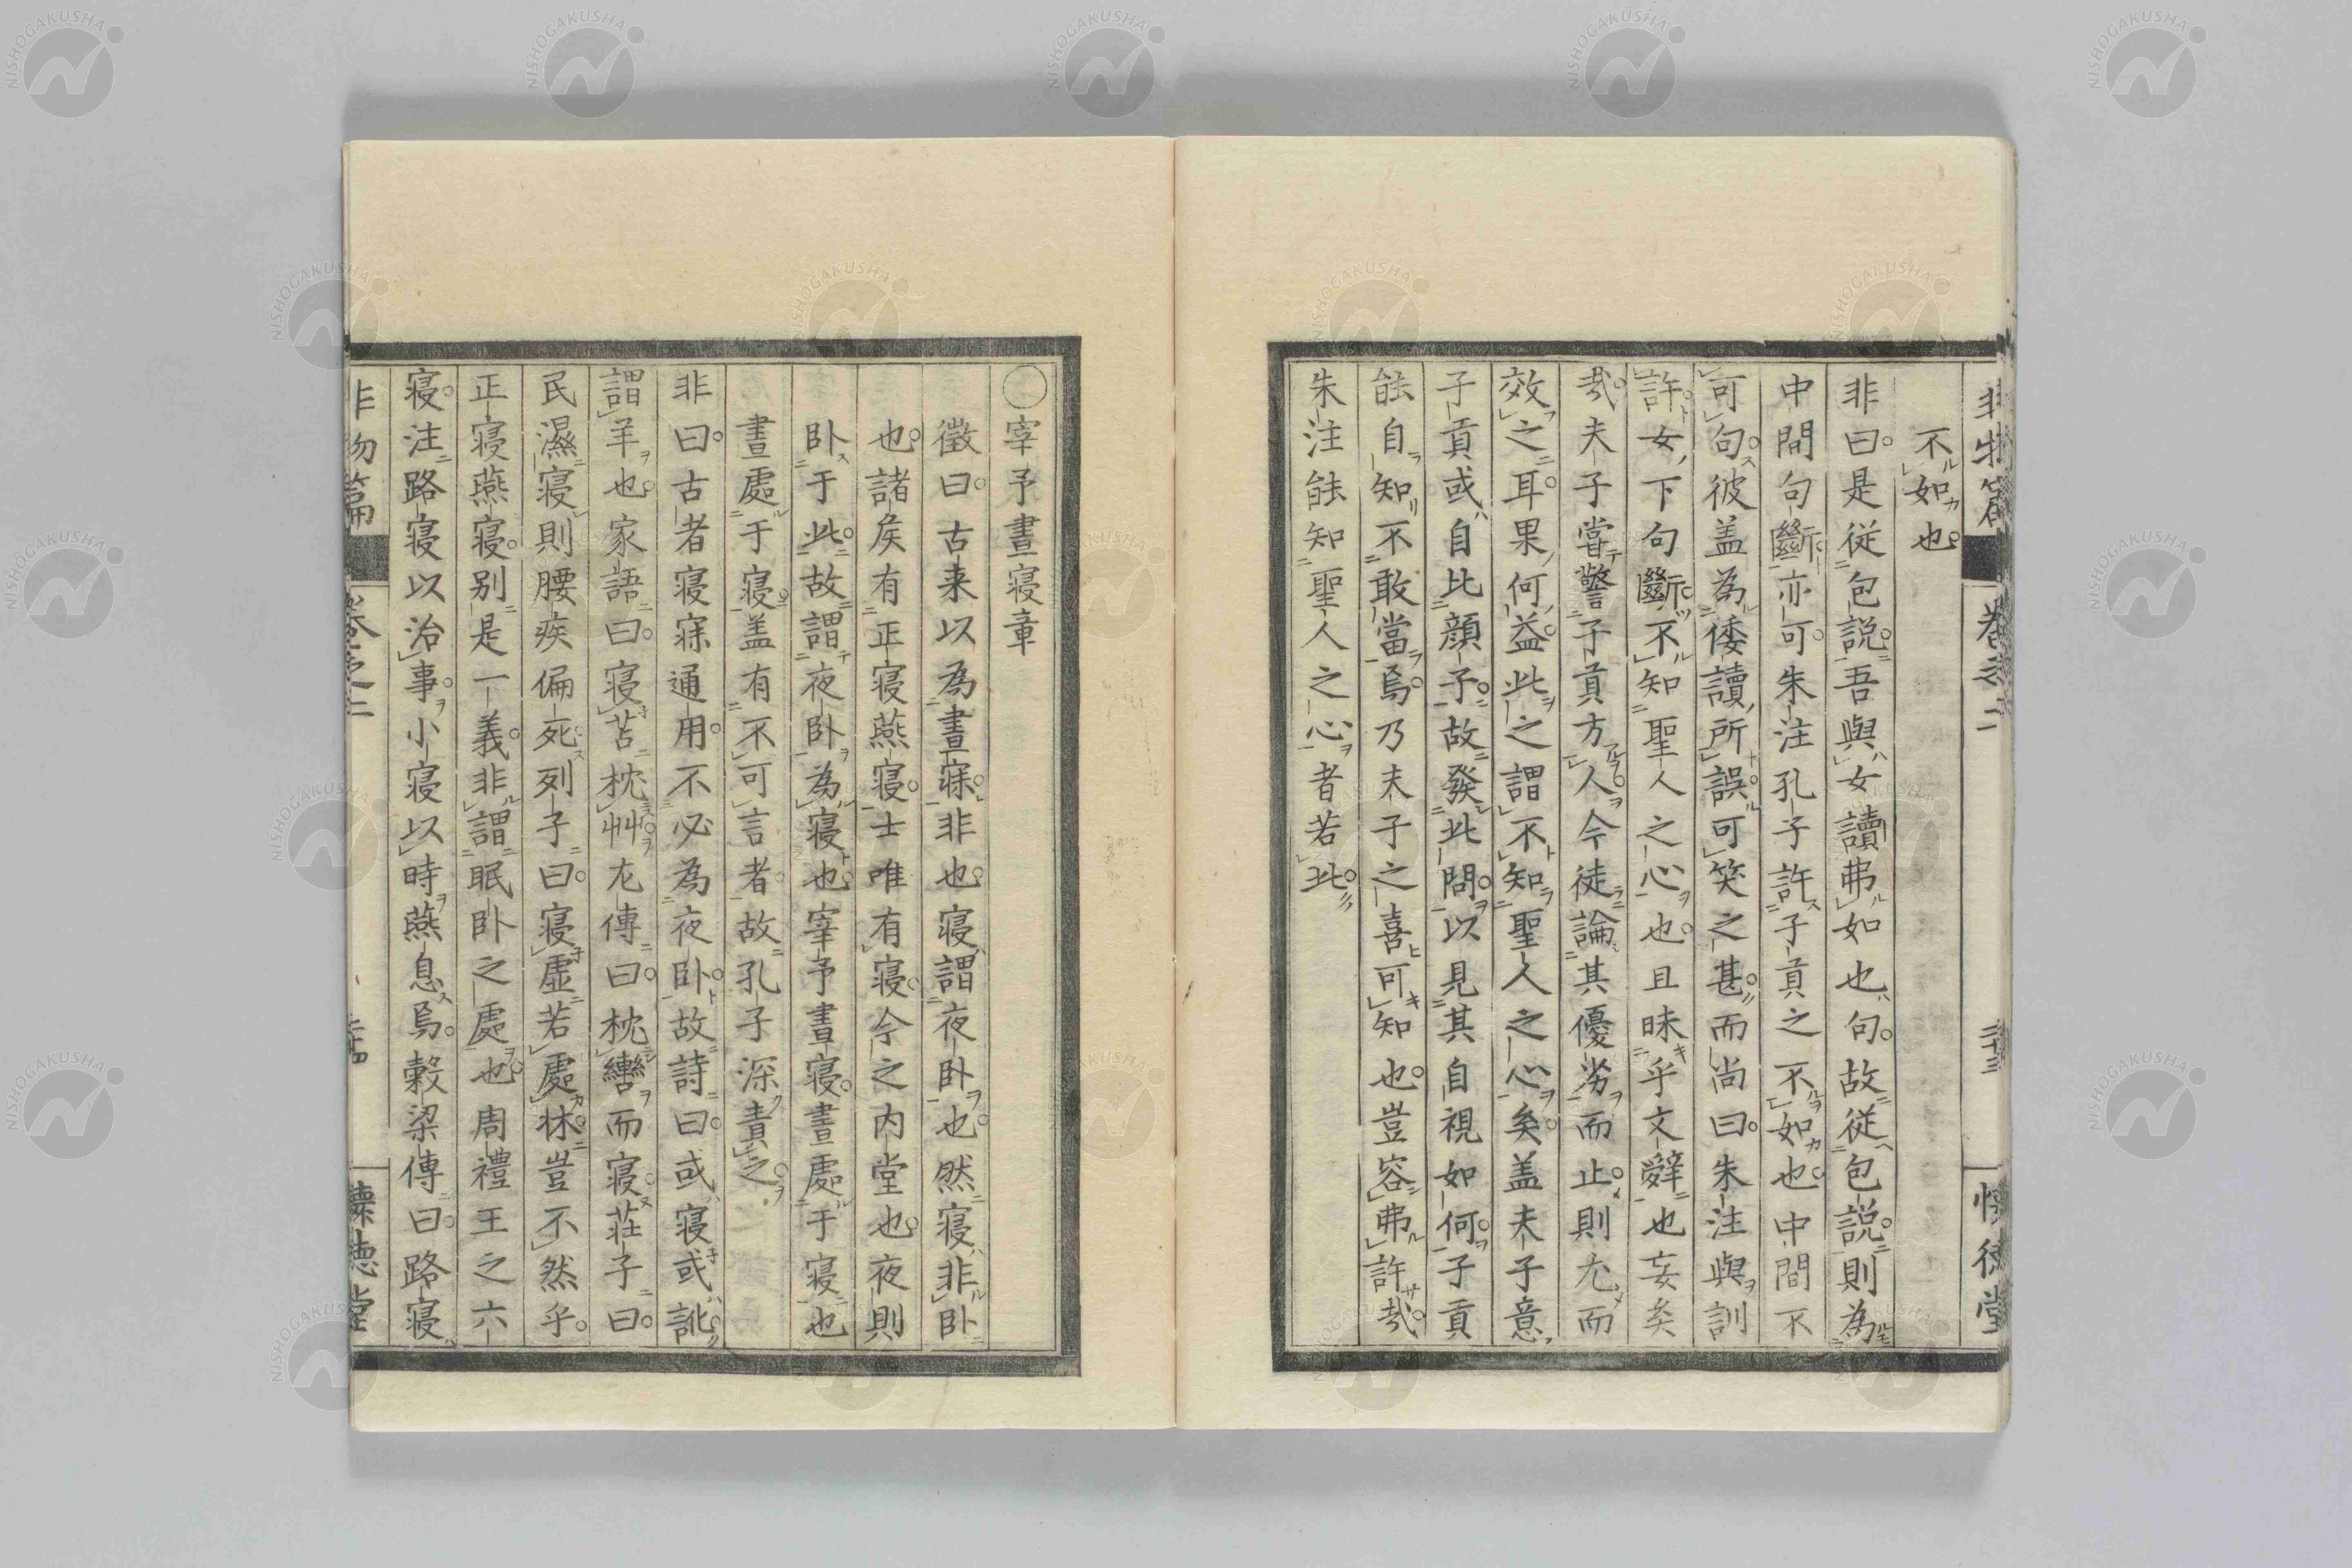 非物篇 卷之二 三十三 懐徳堂
不如也。
非曰。是従包説。吾與女讀。弗如也句。故従包説。則為
中間句斷亦可。朱注孔子許子貢之不如也。中間不
可句。彼盖為倭讀所誤。可笑之甚。而尚曰。朱注與訓
許。女下句斷。不知聖人之心也。且昧乎文辭也。妄矣
哉。夫子當警子貢方人。今徒論其優劣而止。則尤而
效之耳。果何益。此之謂不知聖人之心矣。盖夫子意
子貢或自比顔子。故發此問。以見其自視如何。子貢
能自知不敢當焉。乃夫子之喜可知也。豈容弗許哉。
朱注能知聖人之心者若此。
○宰予晝寝章
徴曰。古来以為晝寐。非也。寝謂夜卧也。然寝非卧
也。諸侯有正寝燕寝。士唯有寝。今之内堂也。夜則
卧于此。故謂夜卧為寝也。宰予晝寝。晝處于寝也
晝處于寝。盖有不可言者。故孔子深責之。
非曰。古者寝寐通用。不必為夜卧。故詩曰。或寝或訛
謂羊也。家語曰。寝苫枕艸。左傳曰。枕轡而寝。荘子曰。
民濕寝則腰疾偏死。列子曰。寝虚若處牀。豈不然乎。
正寝燕寝。别是一義。非謂眠卧之處也。周禮王之六
寝。注路寝以治事。小寝以時燕息焉。穀梁傳曰。路寝
非物篇 卷之二 懐徳堂